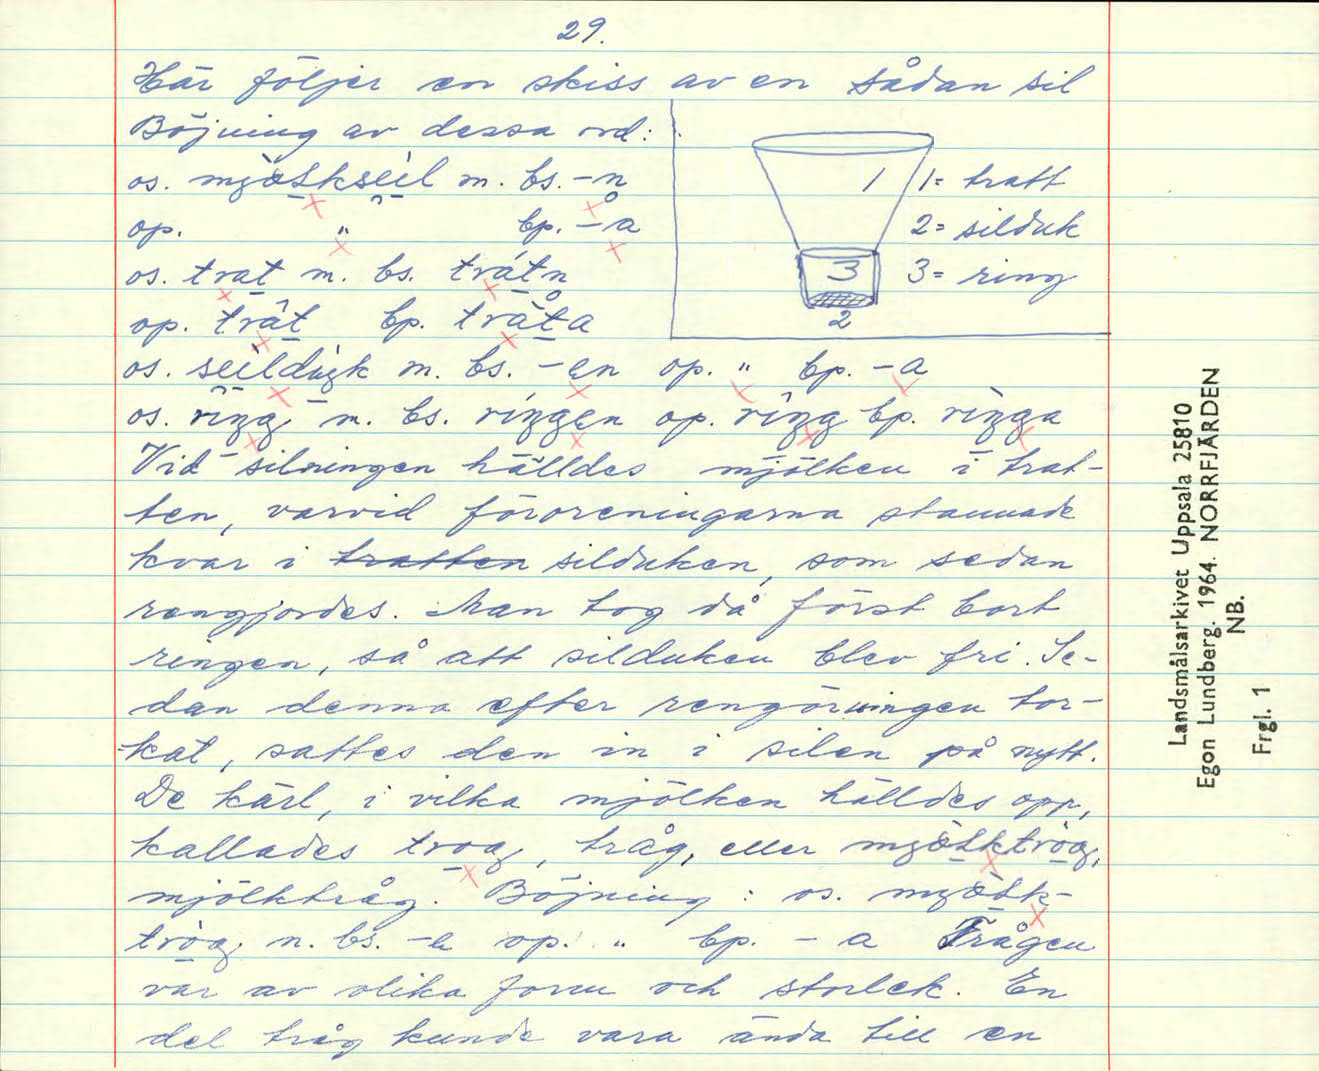 29.
Här följer en skiss av en sådan sil
Böjning av dessa ord:
os. m. bs. -n
op. " bp. -å
os. trat m. bs. trátn
op. trât bp. tràta
os. m. bs. -en op. " bp. -a
os. m. bs. op. bp.
1
3
2
1= tratt
2= silduk
3= ring
Vid silningen hälldes mjölken i trat-
ten, varvid föroreningarna stannade
kvar i tratten silduken, som sedan
rengjordes. Man tog då först bort
ringen, så att silduken blev fri. Se-
dan denna efter rengörningen tor-
kat, sattes den in i silen på nytt.
De kärl, i vilka mjölken hälldes opp,
kallades, tråg, eller
mjölktråg. Böjning: os.
n. bs. -e op. " bp. - a Trågen
var av olika form och storlek. En
del tråg kunde vara ända till en
Landsmålsarkivet Uppsala 25810
Egon Lundberg. 1964. NORRFJÄRDEN
NB.
Frgl. 1